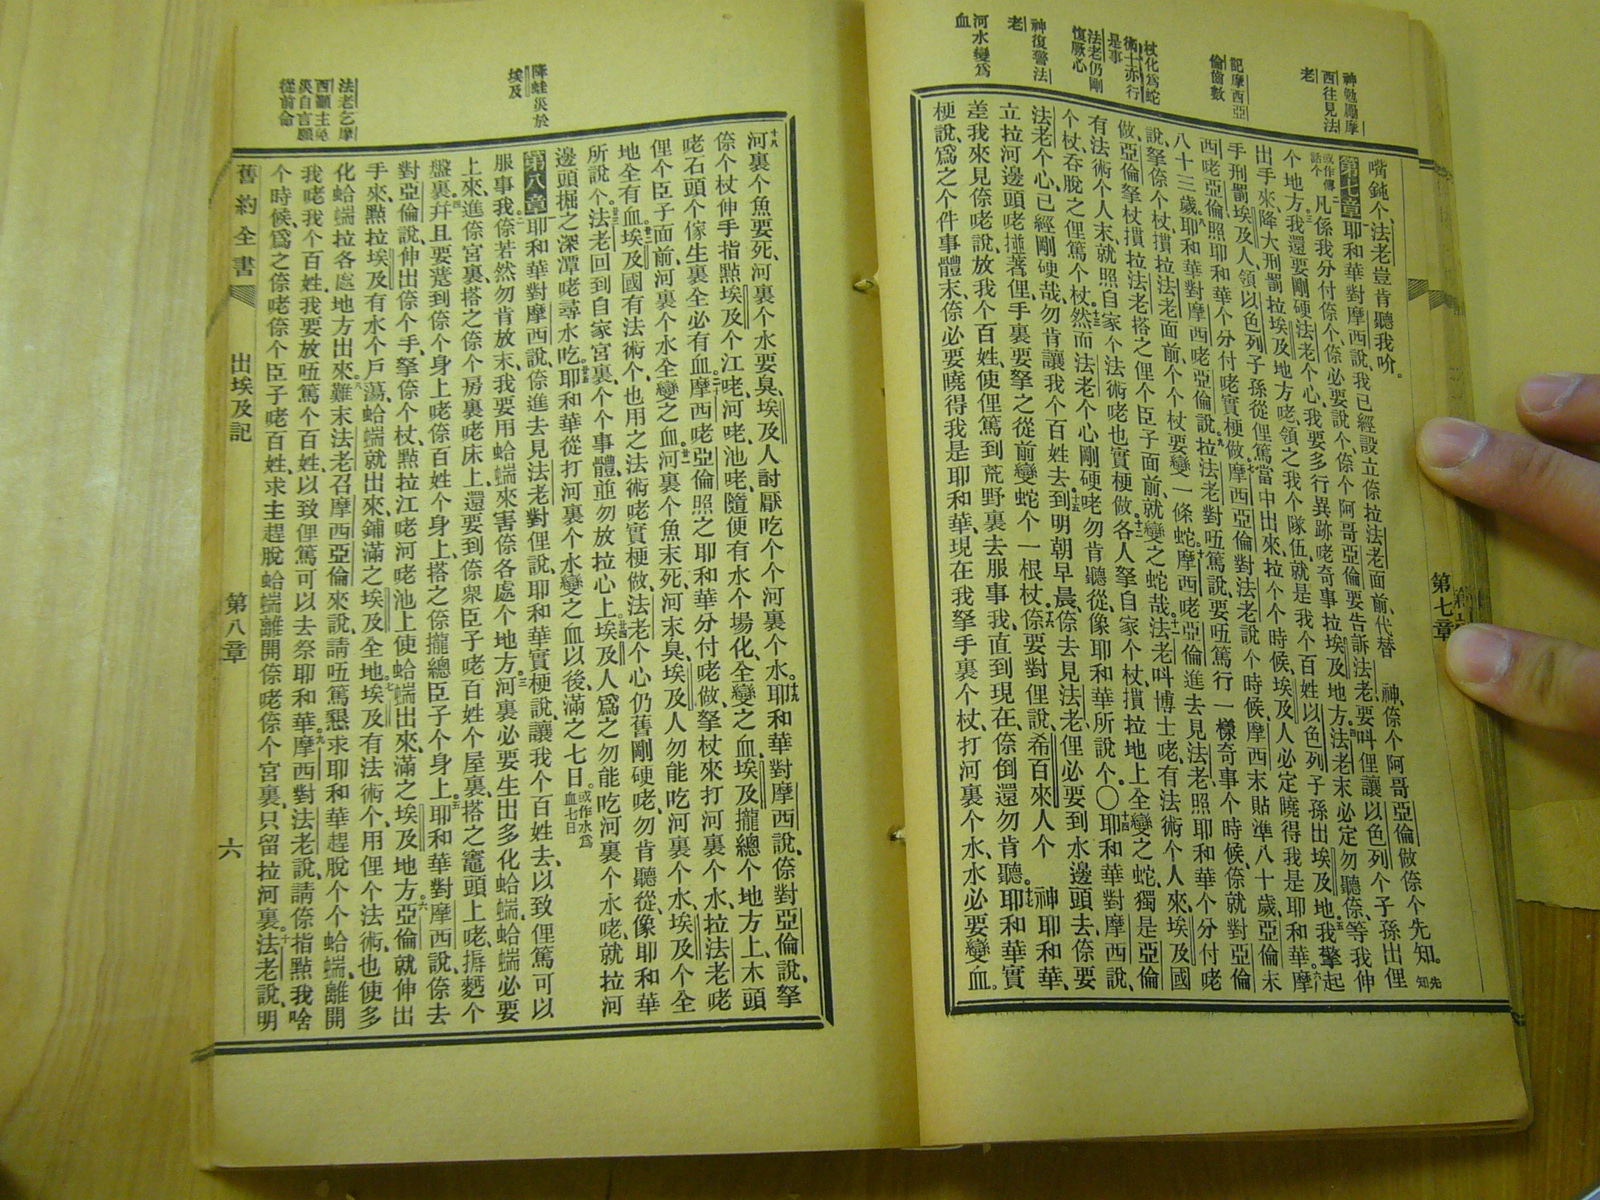 神勉屬摩
西往見法
老
記摩西亞
倫齒數
杖化爲蛇
術士亦行
是事
法老仍剛
愎厥心
神復警法
老
河水變爲
血
嘴鈍个、法老豈肯聽我吤。
第七章 耶和華對摩西說、我已經設立㑚拉法老面前、代替 神、㑚个阿哥亞倫做㑚个先知。先知
或作傳話个 二凡係我分付㑚个、㑚必要說个、㑚个阿哥亞倫、要告訴法老、要呌俚讓以色列个子孫出俚
个地方。三我還要剛硬法老个心、我要多行異跡咾奇事拉埃及地方。四法老末必定勿聽㑚、等我伸
出手來、降大刑罰拉埃及地方咾、領之我个隊伍、就是我个百姓以色列子孫出埃及地。五我擎起
手刑罰埃及人、領以色列子孫從俚篤當中出來、拉个个時候、埃及人必定曉得我是耶和華。六摩
西咾亞倫、照耶和華个分付咾實梗做。七摩西亞倫對法老說个時候、摩西末貼準八十歲、亞倫末
八十三歲。八耶和華對摩西咾亞倫說、九拉法老對㕶篤說、要㕶篤行一樣奇事个時候、㑚就對亞倫
說、拏㑚个杖、摜拉法老面前、个个杖要變一條蛇。十摩西咾亞倫進去見法老、照耶和華个分付咾
做、亞倫拏杖摜拉法老搭之俚个臣子面前、就變之蛇哉。十一法老呌博士咾、有法術个人來、埃及國
有法術个人末、就照自家个法術咾也實梗做。十二各人拏自家个杖、摜拉地上、全變之蛇、獨是亞倫
个杖、吞脫之俚篤个杖。十三然而法老个心剛硬咾、勿肯聽從、像耶和華所說个。〇十四耶和華對摩西說、
法老个心、已經剛硬哉、勿肯讓我个百姓去。十五到明朝早晨、㑚去見法老、俚必要到水邊頭去、㑚要
立拉河邊頭咾撞著俚、手裏要拏之從前變蛇个一根杖。十六㑚要對俚說、希百來人个 神耶和華、
差我來見㑚咾說、放我个百姓、使俚篤到荒野裏去服事我、直到現在、㑚倒還勿肯聽。十七耶和華實
梗說、爲之个件事體末、㑚必要曉得我是耶和華、現在我拏手裏个杖、打河裏个水、水必要變血。
第七章
降蛙災於
埃及
法老乞摩
西籲主免
災自言願
從前命
十八河裏个魚要死、河裏个水要臭、埃及人討厭吃个个河裏个水。十九耶和華對摩西說、㑚對亞倫說、拏
㑚个杖、伸手指點埃及个江咾、河咾、池咾、隨便有水个場化、全變之血、埃及攏總个地方上、木頭
咾石頭个傢生裏、全必有血。二十摩西咾亞倫、照之耶和華分付咾做、拏杖來打河裏个水、拉法老咾
俚个臣子面前、河裏个水全變之血。廿一河裏个魚末死、河末臭、埃及人勿能吃河裏个水、埃及个全
地全有血。廿二埃及國有法術个、也用之法術咾實梗做、法老个心仍舊剛硬咾、勿肯聽從、像耶和華
所說个。廿三法老回到自家宮裏、个个事體、並勿放拉心上。廿四埃及人爲之勿能吃河裏个水咾、就拉河
邊頭掘之深潭咾尋水吃。廿五耶和華從打河裏个水、變之血以後、滿之七日。或作水爲血七日
第八章 耶和華對摩西說、㑚進去見法老、對俚說、耶和華實梗說、讓我个百姓去、以致俚篤可以
服事我、二㑚若然勿肯放末、我要用蛤蝐來害㑚各處个地方。三河裏必要生出多化蛤蝐、蛤蝐必要
上來、進㑚宮裏、搭之㑚个房裏咾床上、還要到㑚衆臣子咾百姓个屋裏、搭之竈頭上咾、搙麫个
盤裏、四并且要躗到㑚个身上咾、㑚百姓个身上、搭之㑚攏總臣子个身上。五耶和華對摩西說、㑚去
對亞倫說、伸出㑚个手、拏㑚个杖、點拉江咾河咾池上、使蛤蝐出來、滿之埃及地方。六亞倫就伸出
手來、點拉埃及有水个戶蕩、蛤蝐就出來、鋪滿之埃及全地。七埃及有法術个、用俚个法術、也使多
化蛤蝐、拉各處地方出來。八難末法老召摩西亞倫來說、請㕶篤懇求耶和華、趕脫个个蛤蝐、離開
我咾我个百姓、我要放㕶篤个百姓、以致俚篤可以去祭耶和華。九摩西對法老說、請㑚指點我、啥
个時候、爲之㑚咾、㑚个臣子咾百姓、求主趕脫蛤蝐、離開㑚咾㑚个宮裏、只留拉河裏。十法老說、明
舊約全書 出埃及記 第八章 六